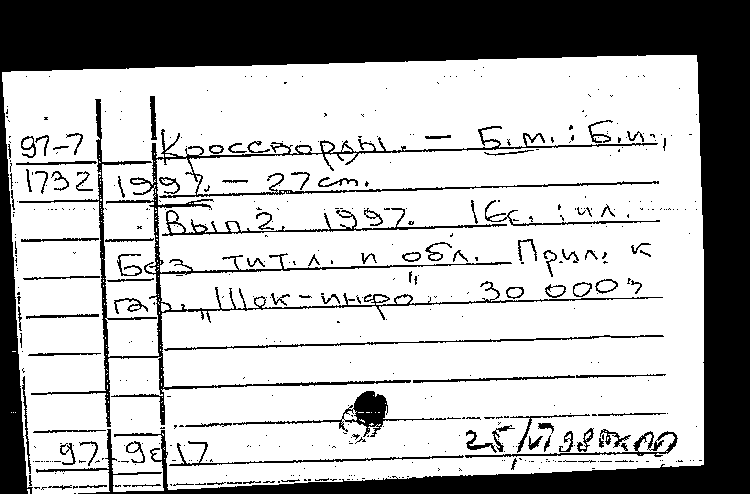 97-7 Кроссворды. — Б.м. : Б.и.,
1732 1997. — 27 cm.
Вып. 2. 1997. 16с. : ил.
Без тит. л. и обл. Прил. к
газ. „Шок-инфо" 30 000э
97 17
25/VI 98